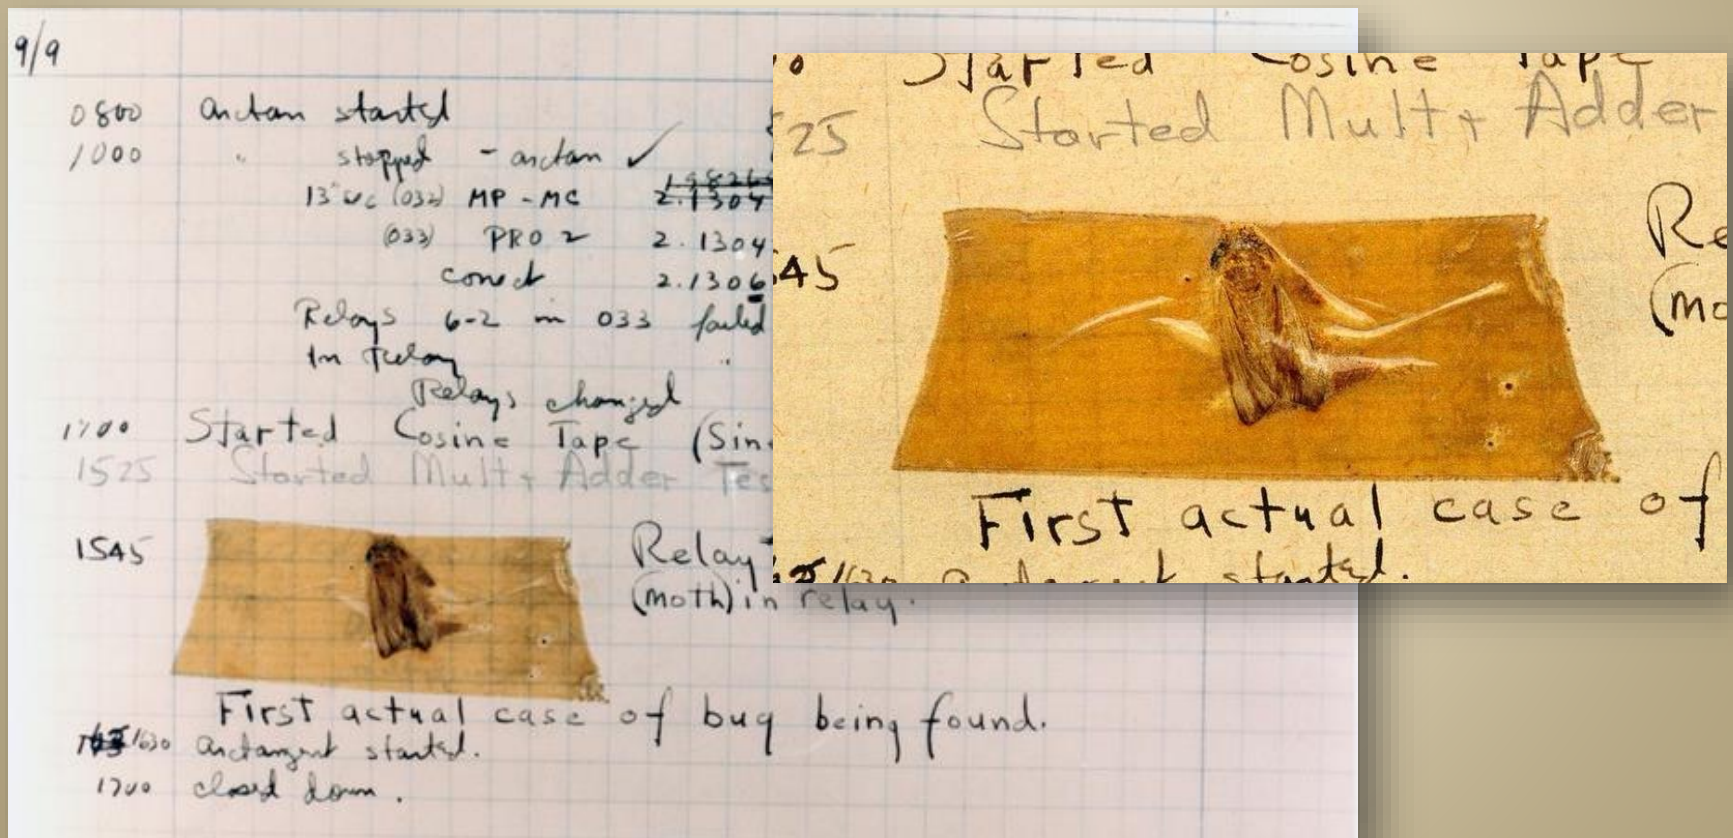 9/9
0800 arctan started
1000 " stopped - arctan ✓
13" uc (032) MP - MC
(033) PRO 2 2.1304
conect 2.1306
Relays 6-2 in 033 failed
In relay
Relays changed
Started Cosine Tape (Sin
1525 Started Mult + Adder Tes
1545 Relay
(moth) in relay.
First actual case of bug being found.
1630 arctangent started.
1700 closed down.
Started Cosine Tape
25 Started Mult + Adder
45 Re
(mo
First actual case of
1630 started.